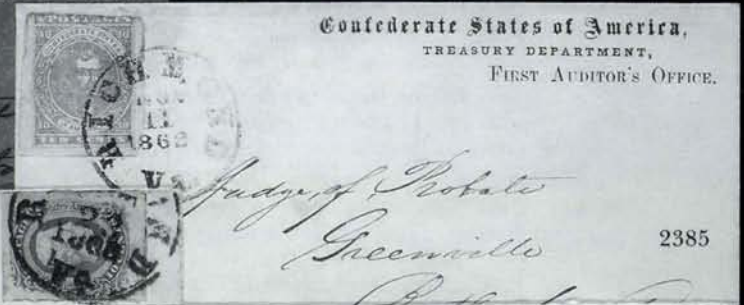 Confederate States of America,
TREASURY DEPARTMENT,
FIRST AUDITOR'S OFFICE.
10 10
RICHMOND
NOV
11
1862
VA
Judge of Probate
Greenville
2385